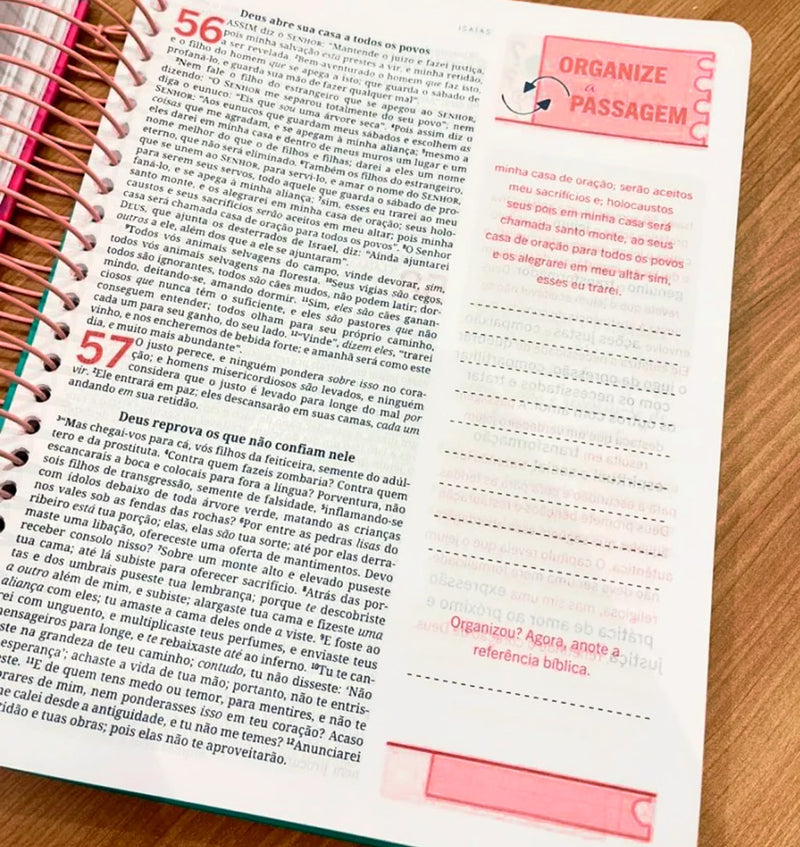 ISAÍAS
56
Deus abre sua casa a todos os povos
ASSIM diz o SENHOR: “Mantende o juízo e fazei justiça,
pois minha salvação está prestes a vir, e minha retidão,
a ser revelada. ²Bem-aventurado o homem que faz isto,
e o filho do homem que se apega a isto; que guarda o sábado de
profaná-lo, e guarda sua mão de fazer qualquer mal”.
³Nem fale o filho do estrangeiro que se apegou ao SENHOR,
dizendo: “O SENHOR me separou totalmente do seu povo”, nem
diga o eunuco: “Eis que sou uma árvore seca”. ⁴Pois assim diz o
SENHOR: “Aos eunucos que guardam meus sábados e escolhem as
coisas que me agradam, e se apegam à minha aliança; ⁵mesmo a
eles darei em minha casa e dentro de meus muros um lugar e um
nome melhor do que o de filhos e filhas; darei a eles um nome
eterno, que não será eliminado. ⁶Também os filhos do estrangeiro,
que se unem ao SENHOR, para servi-lo, e amar o nome do SENHOR,
para serem seus servos, todo aquele que guarda o sábado de pro-
faná-lo, e se apega à minha aliança; ⁷sim, esses eu trarei ao meu
santo monte, e os alegrarei em minha casa de oração; seus holo-
caustos e seus sacrifícios serão aceitos em meu altar; pois minha
casa será chamada casa de oração para todos os povos”. ⁸O Senhor
DEUS, que ajunta os desterrados de Israel, diz: “Ainda ajuntarei
outros a ele, além dos que a ele se ajuntaram”.
⁹Todos vós animais selvagens do campo, vinde devorar, sim,
todos vós animais selvagens na floresta. ¹⁰Seus vigias são cegos,
todos são ignorantes, todos são cães mudos, não podem latir; dor-
mindo, deitando-se, amando dormir. ¹¹Sim, eles são cães ganan-
ciosos que nunca têm o suficiente, e eles são pastores que não
conseguem entender; todos olham para seu próprio caminho,
cada um para seu ganho, do seu lado. ¹²“Vinde”, dizem eles, “trarei
vinho, e nos encheremos de bebida forte; e amanhã será como este
dia, e muito mais abundante”.
57
O justo perece, e ninguém pondera sobre isso no cora-
ção; e homens misericordiosos são levados, e ninguém
considera que o justo é levado para longe do mal por
vir. ²Ele entrará em paz; eles descansarão em suas camas, cada um
andando em sua retidão.
Deus reprova os que não confiam nele
³“Mas chegai-vos para cá, vós filhos da feiticeira, semente do adúl-
tero e da prostituta. ⁴Contra quem fazeis zombaria? Contra quem
escancarais a boca e colocais para fora a língua? Porventura, não
sois filhos de transgressão, semente de falsidade, ⁵inflamando-se
com ídolos debaixo de toda árvore verde, matando as crianças
nos vales sob as fendas das rochas? ⁶Por entre as pedras lisas do
ribeiro está tua porção; elas, elas são tua sorte; até por elas derra-
maste uma libação, ofereceste uma oferta de mantimentos. Devo
receber consolo nisso? ⁷Sobre um monte alto e elevado puseste
tua cama; até lá subiste para oferecer sacrifício. ⁸Atrás das por-
tas e dos umbrais puseste tua lembrança; porque te descobriste
a outro além de mim, e subiste; alargaste tua cama e fizeste uma
aliança com eles; tu amaste a cama deles onde a viste. ⁹E foste ao
rei com unguento, e multiplicaste teus perfumes, e enviaste teus
ensageiros para longe, e te rebaixaste até ao inferno. ¹⁰Tu te can-
ste na grandeza de teu caminho; contudo, tu não disseste: ‘Não
esperança’; achaste a vida de tua mão; portanto, não te entris-
este. ¹¹E de quem tens medo ou temor, para mentires, e não te
brares de mim, nem ponderasses isso em teu coração? Acaso
me calei desde a antiguidade, e tu não me temes? ¹²Anunciarei
tidão e tuas obras; pois elas não te aproveitarão.
ORGANIZE
a
PASSAGEM
minha casa de oração; serão aceitos
meu sacrifícios e; holocaustos
seus pois em minha casa será
chamada santo monte, ao seus
casa de oração para todos os povos
e os alegrarei em meu altar sim,
esses eu trarei.
Organizou? Agora, anote a
referência bíblica.